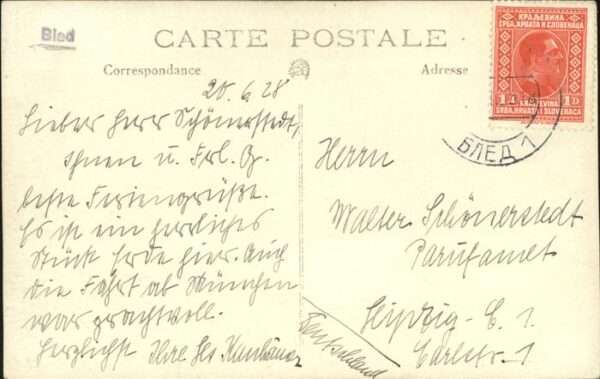 Bled
CARTE POSTALE
Correspondance
Adresse
КРАЉЕВИНА
СРБА, ХРВАТА И СЛОВЕНАЦА
1 D
KRALJEVINA
1 D
SRBA, HRVATA I SLOVENACA
БЛЕД 1
20.6.28
Lieber Herr Schönerstedt,
Ihnen u. Frl. G.
beste Feriengrüße.
Es ist ein herrliches
Stück Erde hier. Auch
die Fahrt ab München
war prachtvoll.
Herzlichst Ihre
Herrn
Walter Schönerstedt
Leipzig - C. 1.
Carlstr. 1
Deutschland